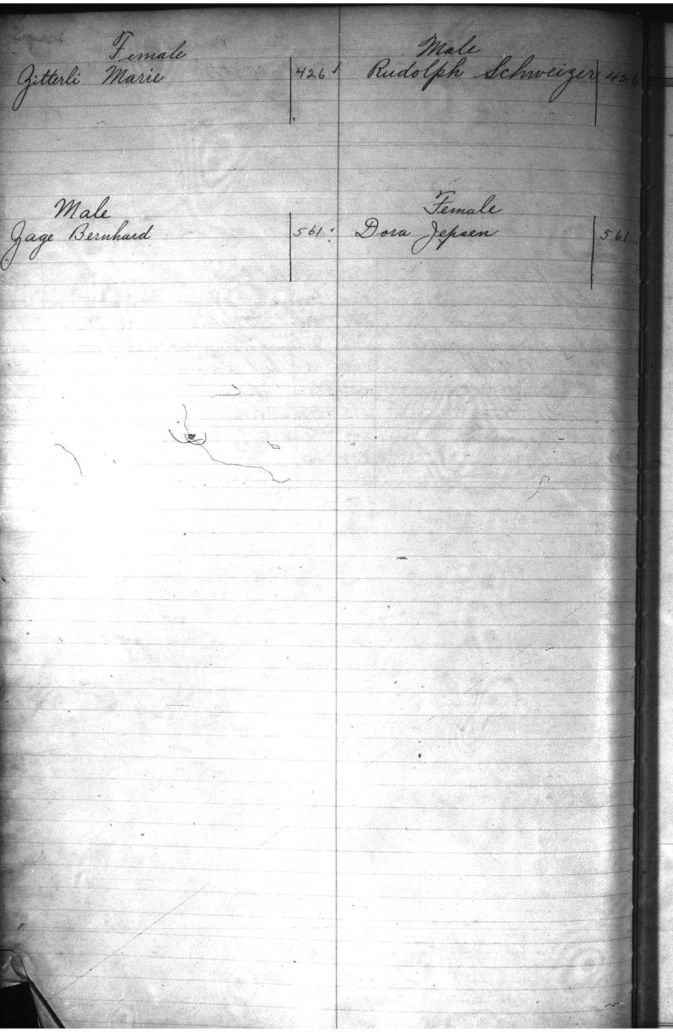 Female
Zitterli Marie 426
Male
Rudolph Schweizer 426
Male
Zage Bernhard 561
Female
Dora Jepsen 561